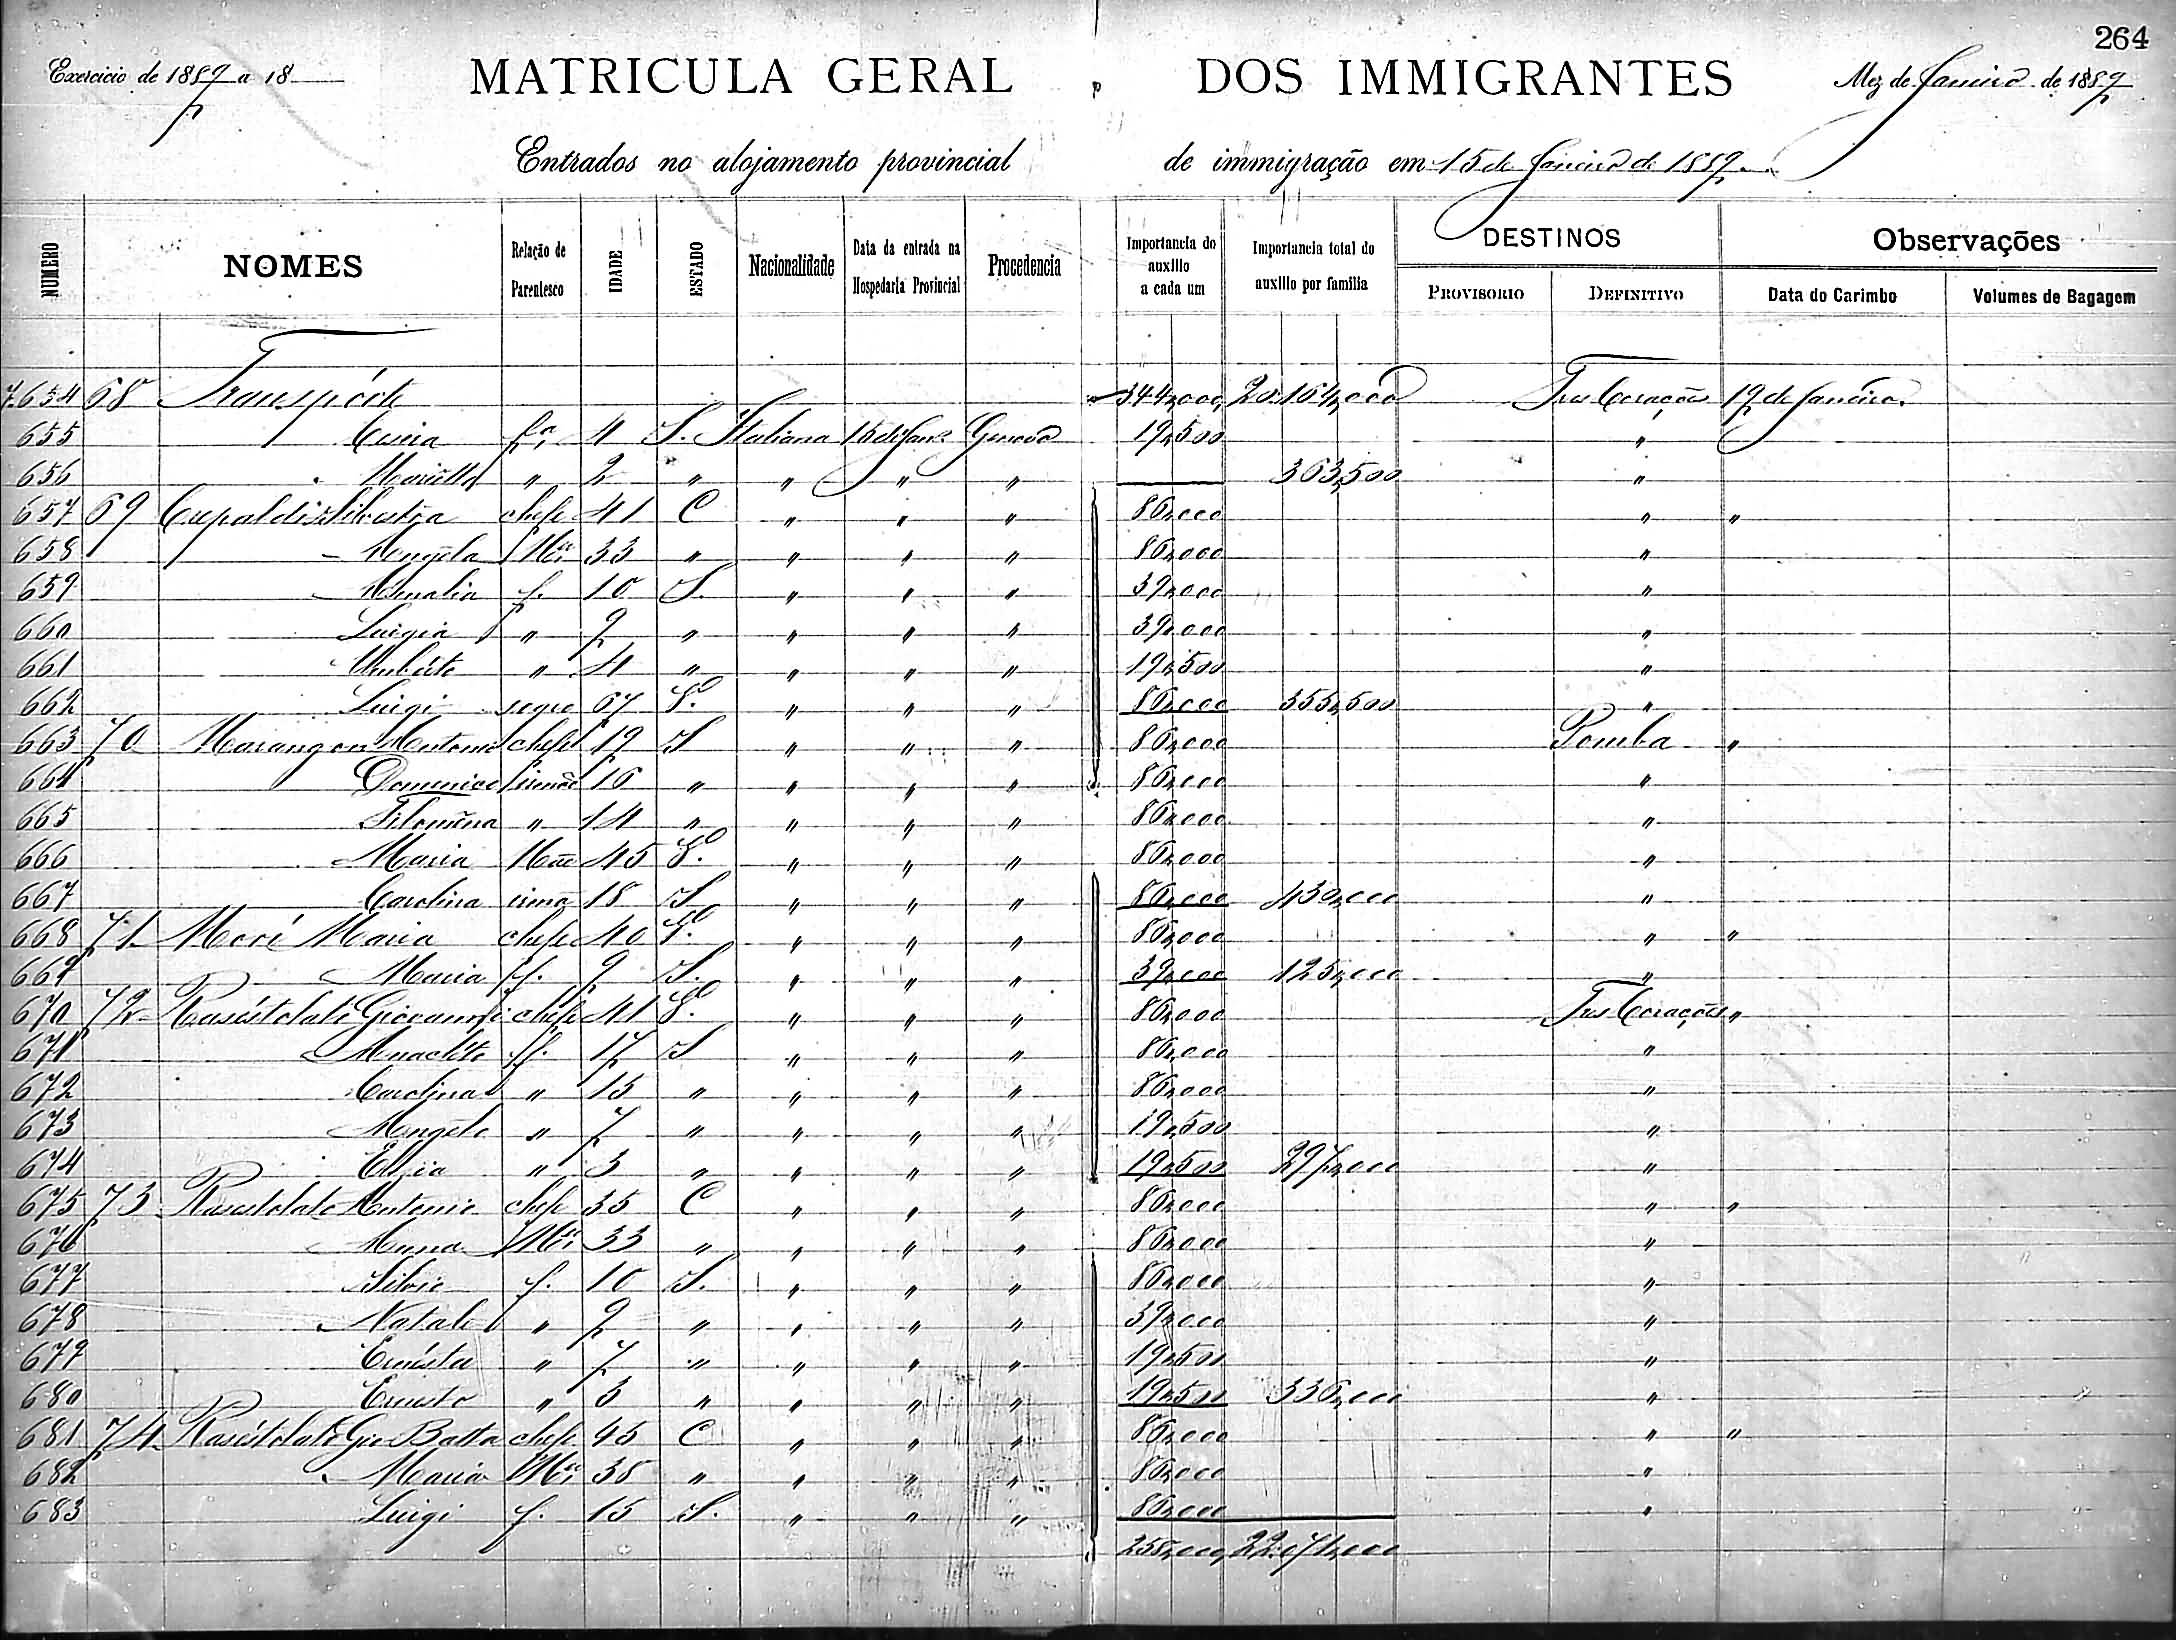 264
Exercicio de 1889 a 18
MATRICULA GERAL DOS IMMIGRANTES
Mez de Janeiro de 1889
Entrados no alojamento provincial de immigração em 15 de Janeiro de 1889
NUMERO NOMES Relação de Parentesco IDADE ESTADO Nacionalidade Data da entrada na Hospedaria Provincial Procedencia Importancia do auxilio a cada um Importancia total do auxilio por familia DESTINOS Observações
PROVISORIO DEFINITIVO Data do Carimbo Volumes de Bagagem
7.654 68 Transpórte 344,000 20.164,000 Tres Corações 19 de Janeiro
655 fa 4 S. Italiana 15 de Janro Genova 19,500 "
656 " 2 " " " " 363,500 "
657 69 chefe 41 C " " " 86,000 " "
658 Angela Mer 33 " " " " 86,000 "
659 Amalia f. 10 S. " " " 39,000 "
660 Luigia " 9 " " " " 39,000 "
661 Umbérto " 4 " " " " 19,500 "
662 Luigi sogro 67 Vo " " " 86,000 355,500 "
663 70 Marangon Antonio chefe 19 S " " " 86,000 Pomba "
664 Domenico irmão 16 " " " " 86,000 "
665 Filoména " 14 " " " " 86,000 "
666 Maria Mãe 45 Va " " " 86,000 "
667 Carolina irmã 18 S " " " 86,000 430,000 "
668 71 Moré Maria chefe 40 Va " " " 86,000 " "
669 Maria f. 9 S. " " " 39,000 125,000 "
670 72 Giovanni chefe 41 Vo " " " 86,000 Tres Corações "
671 Anacléto f. 17 S " " " 86,000 "
672 Carolina " 15 " " " " 86,000 "
673 Angelo " 7 " " " " 19,500 "
674 " 3 " " " " 19,500 297,000 "
675 73 Antonio chefe 35 C " " " 86,000 " "
676 Anna Mer 33 " " " " 86,000 "
677 Silvio f. 10 S. " " " 86,000 "
678 Natale " 9 " " " " 39,000 "
679 Ernésta " 7 " " " " 19,500 "
680 Ernesto " 3 " " " " 19,500 336,000 "
681 74 Gio Batta chefe 45 C " " " 86,000 " "
682 Maria Mer 38 " " " " 86,000 "
683 Luigi f. 15 S. " " " 86,000 "
258,000 22.071,000